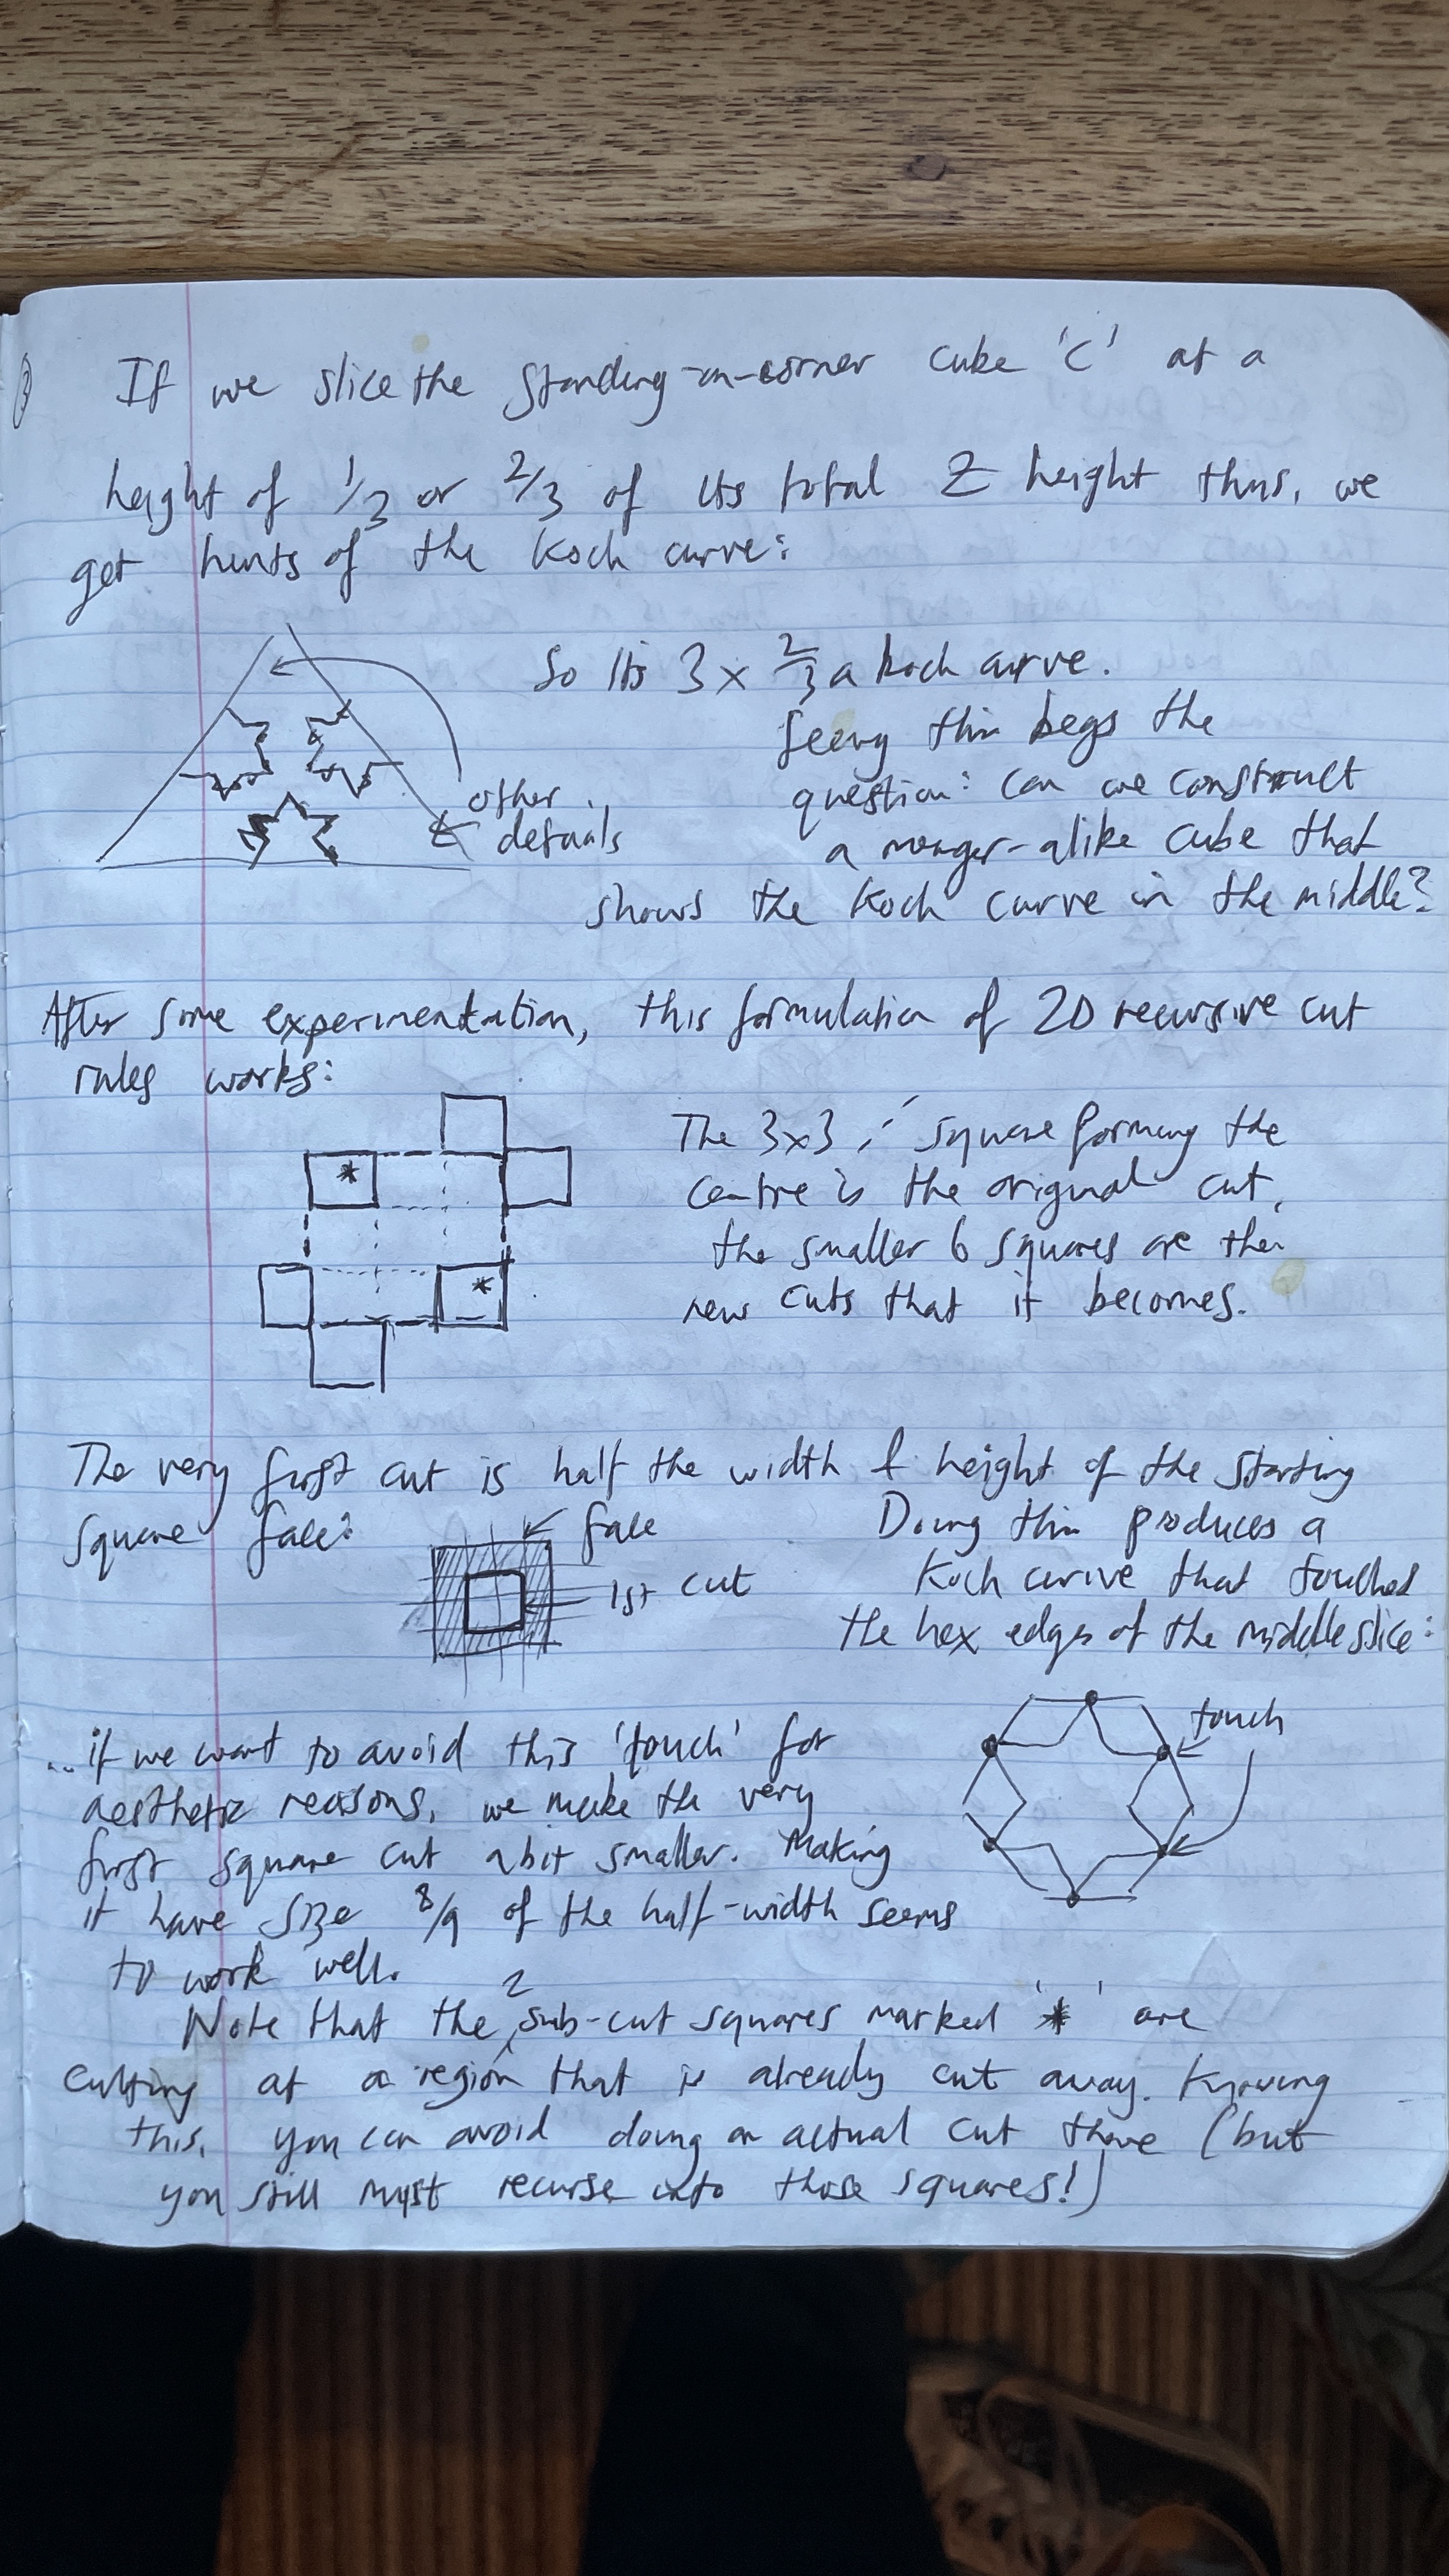 ③
If we slice the standing-on-corner cube 'C' at a
height of 1/3 or 2/3 of its total Z height thus, we
get hints of the Koch curve:
So its 3 x 2/3 a koch curve.
Seeing this begs the
question: can we construct
a menger-alike cube that
shows the Koch curve in the middle?
other
details
After some experimentation, this formulation of 2D recursive cut
rules works:
The 3x3 square forming the
centre is the original cut,
the smaller 6 squares are the
new cuts that it becomes.
*
*
The very first cut is half the width & height of the starting
square face:
face
1st cut
Doing this produces a
Koch curve that touched
the hex edges of the middle slice:
touch
...if we want to avoid this 'touch' for
aesthetic reasons, we make the very
first square cut a bit smaller. Making
it have size 8/9 of the half-width seems
to work well.
Note that the 2 sub-cut squares marked '*' are
cutting at a region that is already cut away. Knowing
this, you can avoid doing an actual cut there (but
you still must recurse into those squares!)